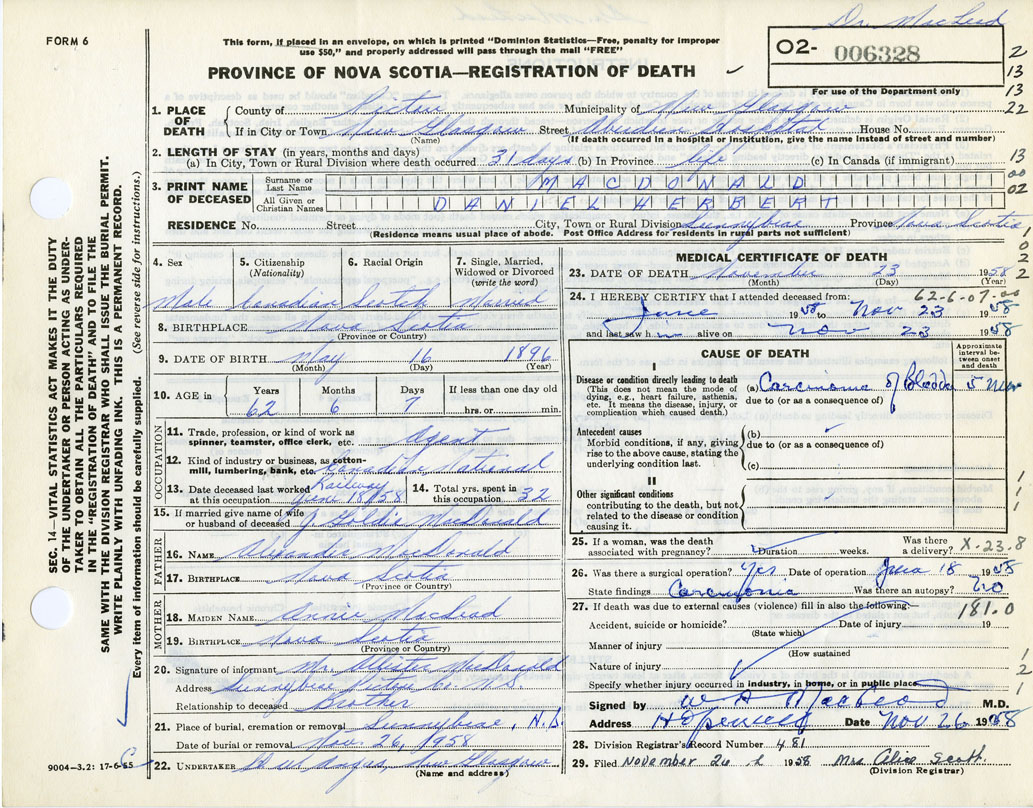 Dr. MacLeod
FORM 6
This form, if placed in an envelope, on which is printed "Dominion Statistics—Free, penalty for improper
use $50," and properly addressed will pass through the mail "FREE"
O2- 006328
For use of the Department only
PROVINCE OF NOVA SCOTIA—REGISTRATION OF DEATH
2
13
13
22
13
00
02
1
0
2
2
1. PLACE OF DEATH County of Pictou Municipality of New Glasgow
If in City or Town New Glasgow Street Aberdeen Hospital House No.
(Name) (If death occurred in a hospital or institution, give the name instead of street and number)
2. LENGTH OF STAY (in years, months and days)
(a) In City, Town or Rural Division where death occurred 31 days (b) In Province life (c) In Canada (if immigrant)
3. PRINT NAME OF DECEASED
Surname or Last Name MACDONALD
All Given or Christian Names DANIEL HERBERT
RESIDENCE No. Street City, Town or Rural Division Sunnybrae Province Nova Scotia
(Residence means usual place of abode. Post Office Address for residents in rural parts not sufficient)
4. Sex 5. Citizenship (Nationality) 6. Racial Origin 7. Single, Married, Widowed or Divorced (write the word)
Male Canadian Scotch Married
8. BIRTHPLACE Nova Scotia
(Province or Country)
9. DATE OF BIRTH May 16 1896
(Month) (Day) (Year)
10. AGE in Years Months Days If less than one day old
62 6 7 hrs. or min.
OCCUPATION
11. Trade, profession, or kind of work as
spinner, teamster, office clerk, etc. Agent
12. Kind of industry or business, as cotton-
mill, lumbering, bank, etc. Canadian National
Railway
13. Date deceased last worked at this occupation June 18/58 14. Total yrs. spent in this occupation 32
15. If married give name of wife
or husband of deceased J. Goldie MacDonald
FATHER
16. NAME MacDonald
17. BIRTHPLACE Nova Scotia
(Province or Country)
MOTHER
18. MAIDEN NAME Annie MacLeod
19. BIRTHPLACE Nova Scotia
(Province or Country)
20. Signature of informant Mr. MacDonald
Address Sunnybrae Pictou Co. N.S.
Relationship to deceased Brother
21. Place of burial, cremation or removal Sunnybrae, N.S.
Date of burial or removal Nov. 26, 1958
22. UNDERTAKER New Glasgow
(Name and address)
MEDICAL CERTIFICATE OF DEATH
23. DATE OF DEATH November 23 1958
(Month) (Day) (Year)
24. I HEREBY CERTIFY that I attended deceased from: 62-6-07-00
June 1958 to Nov 23 1958
and last saw him alive on Nov 23 1958
CAUSE OF DEATH
Approximate interval between onset and death
I
Disease or condition directly leading to death
(This does not mean the mode of
dying, e.g., heart failure, asthenia,
etc. It means the disease, injury, or
complication which caused death.)
(a) Carcinoma of Bladder 5 mos
due to (or as a consequence of)
Antecedent causes
Morbid conditions, if any, giving
rise to the above cause, stating the
underlying condition last.
(b)
due to (or as a consequence of)
(c)
II
Other significant conditions
contributing to the death, but not
related to the disease or condition
causing it.
1
1
1
25. If a woman, was the death
associated with pregnancy? Duration weeks. Was there a delivery? X-23.8
26. Was there a surgical operation? Yes Date of operation June 18 1958
State findings Carcinoma Was there an autopsy? No
27. If death was due to external causes (violence) fill in also the following:— 181.0
Accident, suicide or homicide? Date of injury 19
(State which)
Manner of injury
(How sustained
Nature of injury
Specify whether injury occurred in industry, in home, or in public place
1
2
1
Signed by W A MacLeod M.D.
Address Hopewell Date Nov 26 1958
28. Division Registrar's Record Number 481
29. Filed November 26 1958 Mrs Alice Scott
(Division Registrar)
SEC. 14—VITAL STATISTICS ACT MAKES IT THE DUTY
OF THE UNDERTAKER OR PERSON ACTING AS UNDER-
TAKER TO OBTAIN ALL THE PARTICULARS REQUIRED
IN THE "REGISTRATION OF DEATH" AND TO FILE THE
SAME WITH THE DIVISION REGISTRAR WHO SHALL ISSUE THE BURIAL PERMIT.
WRITE PLAINLY WITH UNFADING INK. THIS IS A PERMANENT RECORD.
Every item of information should be carefully supplied. (See reverse side for instructions.)
9004—3.2: 17-6-55